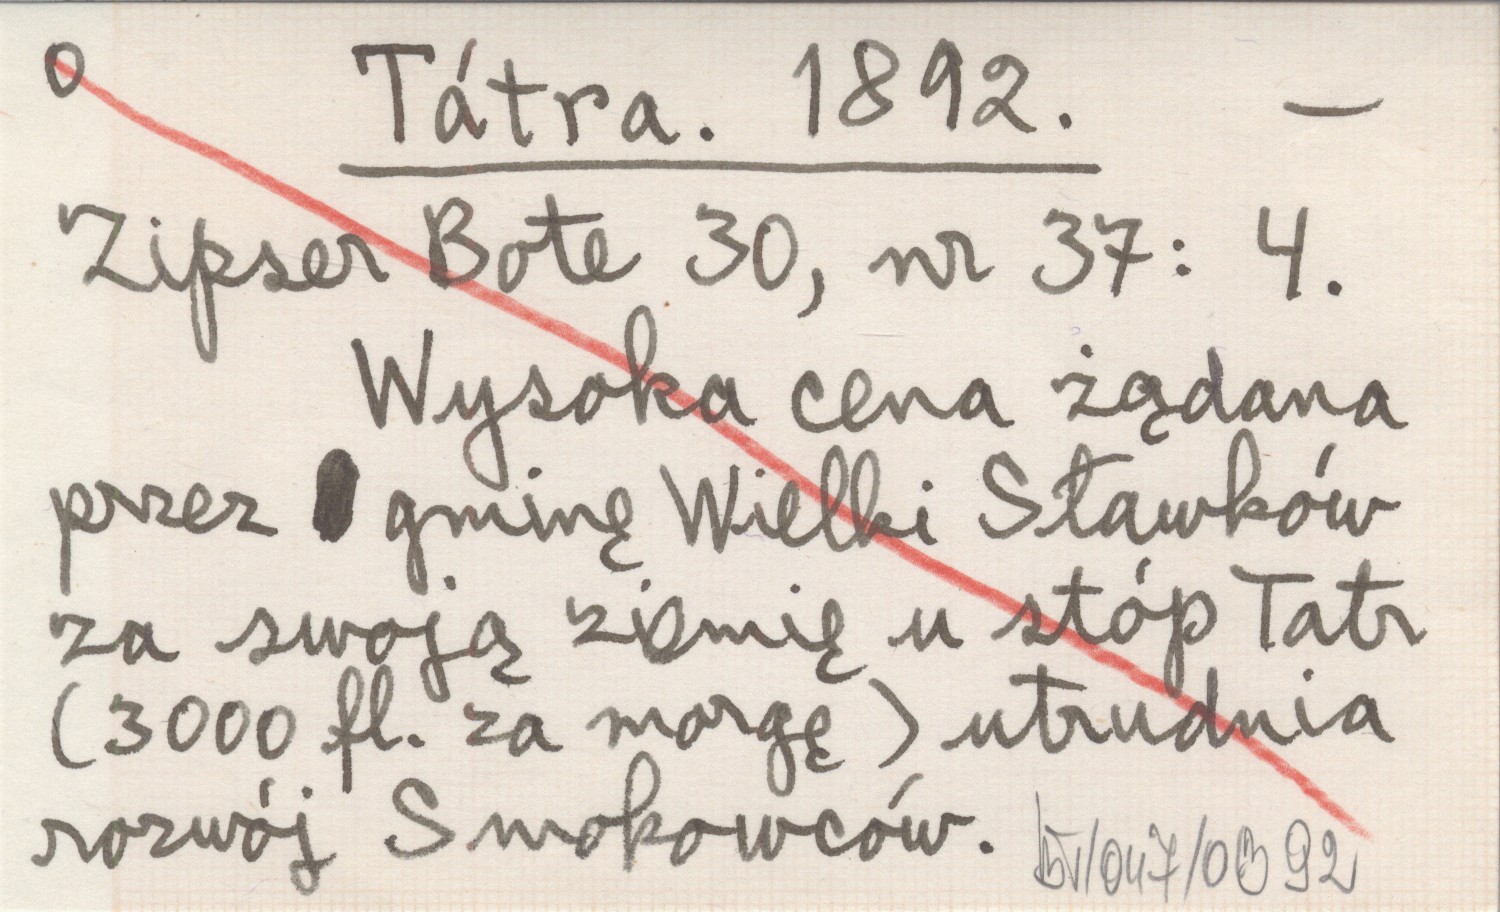 0 Tátra. 1892. —
Zipser Bote 30, nr 37: 4.
Wysoka cena żądana
przez gminę Wielki Sławków
za swoją ziemię u stóp Tatr
(3000 fl. za morgę) utrudnia
rozwój Smokowców.
/047/0392